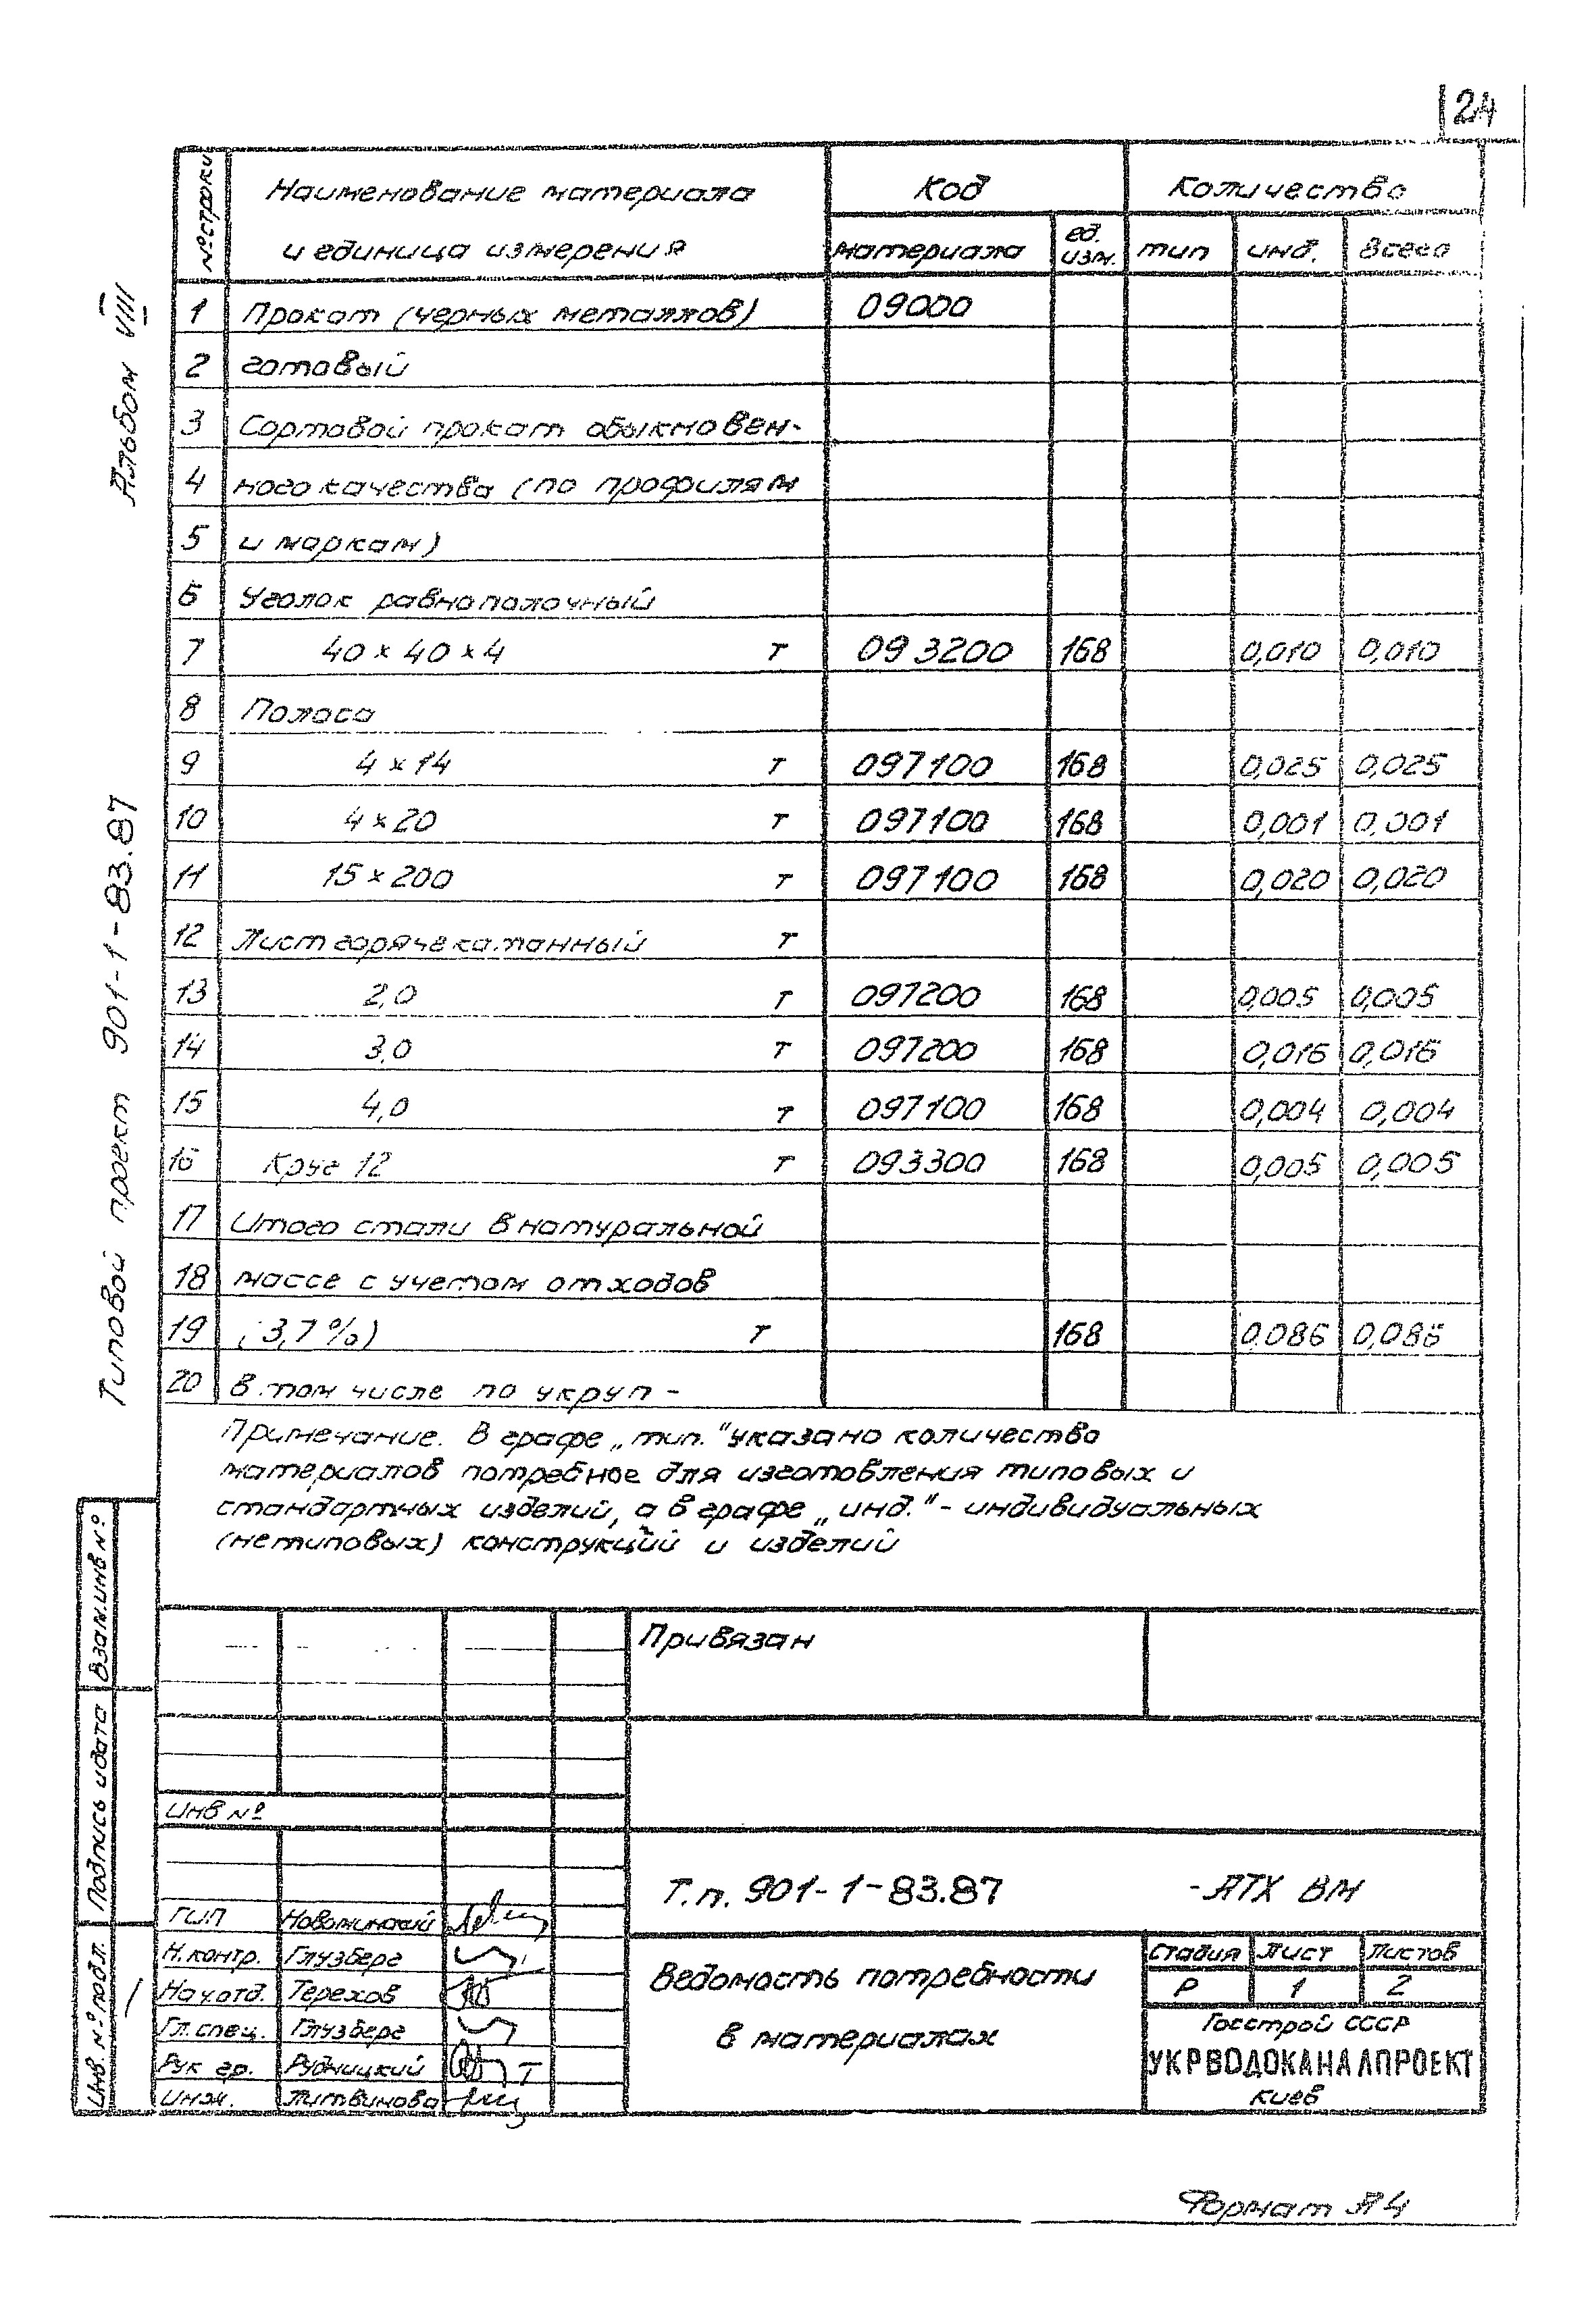 24
№ строки Наименование материала и единица измерения Код Количество
материала ед. изм. тип инд. Всего
1 Прокат (черных металлов) 09000
2 готовый
3 Сортовой прокат обыкновен-
4 ного качества (по профилям
5 и маркам)
6 Уголок равнополочный
7 40 х 40 х 4 т 093200 168 0,010 0,010
8 Полоса
9 4 х 14 т 097100 168 0,025 0,025
10 4 х 20 т 097100 168 0,001 0,001
11 15 х 200 т 097100 168 0,020 0,020
12 Лист горячекатанный т
13 2,0 т 097200 168 0,005 0,005
14 3,0 т 097200 168 0,016 0,016
15 4,0 т 097100 168 0,004 0,004
16 Круг 12 т 093300 168 0,005 0,005
17 Итого стали в натуральной
18 массе с учетом отходов
19 (3,7%) т 168 0.086 0,086
20 В том числе по укруп-
Примечание. В графе „тип." указано количество
материалов потребное для изготовления типовых и
стандартных изделий, а в графе „инд." - индивидуальных
(нетиповых) конструкций и изделий
Альбом VIII
Типовой проект 901-1-83.87
Взам.инв №
Подпись и дата
Инв. № подл.
Привязан
Инв №
Т.п. 901-1-83.87 -АТХ ВМ
ГИП Новоминский
Н.контр. Глузберг
Нач.отд. Терехов
Гл.спец. Глузберг
Рук гр. Рудницкий
Инж. Литвинова
Ведомость потребности
в материалах
Стадия Лист Листов
Р 1 2
Госстрой СССР
УКРВОДОКАНАЛПРОЕКТ
Киев
Формат А4